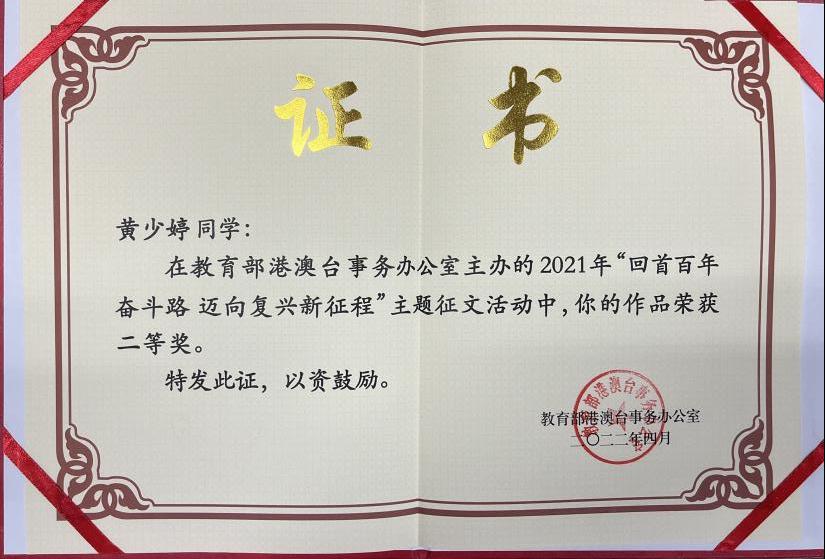 证书
黄少婷同学：
在教育部港澳台事务办公室主办的2021年“回首百年
奋斗路 迈向复兴新征程”主题征文活动中，你的作品荣获
二等奖。
特发此证，以资鼓励。
教育部港澳台事务办公室
二〇二二年四月
教育部港澳台事务办公室